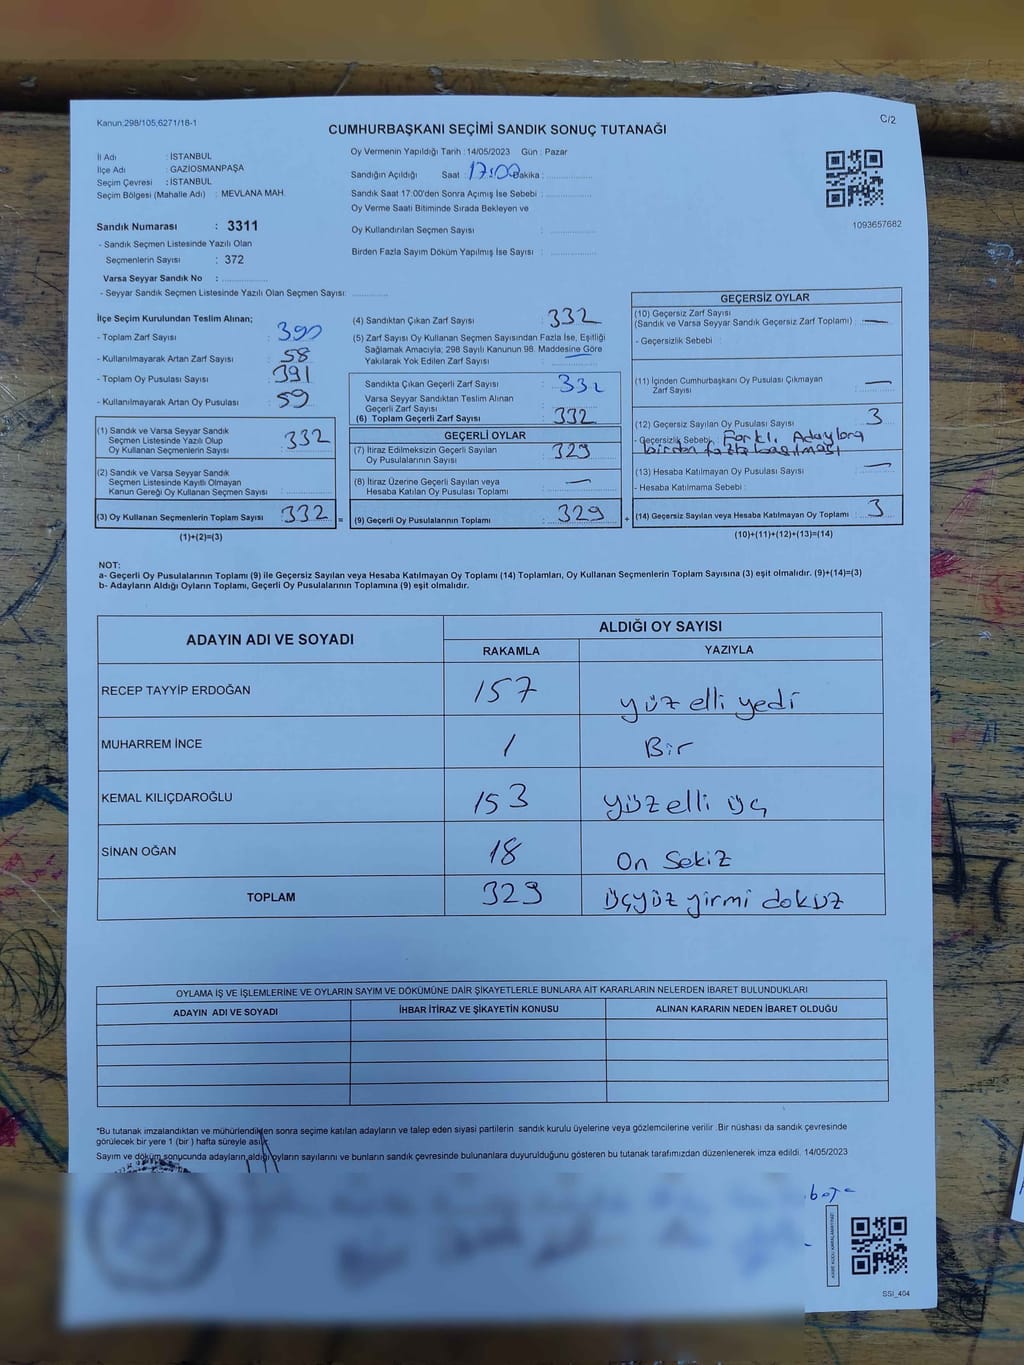 Kanun:298/105;6271/18-1
C/2
CUMHURBAŞKANI SEÇİMİ SANDIK SONUÇ TUTANAĞI
İl Adı : İSTANBUL
İlçe Adı : GAZİOSMANPAŞA
Seçim Çevresi : İSTANBUL
Seçim Bölgesi (Mahalle Adı) : MEVLANA MAH.
Sandık Numarası : 3311
- Sandık Seçmen Listesinde Yazılı Olan
Seçmenlerin Sayısı : 372
Varsa Seyyar Sandık No :
- Seyyar Sandık Seçmen Listesinde Yazılı Olan Seçmen Sayısı:
Oy Vermenin Yapıldığı Tarih :14/05/2023 Gün : Pazar
Sandığın Açıldığı Saat : 17:00 Dakika :
Sandık Saat 17.00'den Sonra Açımış İse Sebebi :
Oy Verme Saati Bitiminde Sırada Bekleyen ve
Oy Kullandırılan Seçmen Sayısı :
Birden Fazla Sayım Döküm Yapılmış İse Sayısı :
1093657682
İlçe Seçim Kurulundan Teslim Alınan;
- Toplam Zarf Sayısı : 390
- Kullanılmayarak Artan Zarf Sayısı : 58
- Toplam Oy Pusulası Sayısı : 391
- Kullanılmayarak Artan Oy Pusulası : 59
(1) Sandık ve Varsa Seyyar Sandık
Seçmen Listesinde Yazılı Olup
Oy Kullanan Seçmenlerin Sayısı : 332
(2) Sandık ve Varsa Seyyar Sandık
Seçmen Listesinde Kayıtlı Olmayan
Kanun Gereği Oy Kullanan Seçmen Sayısı :
(3) Oy Kullanan Seçmenlerin Toplam Sayısı : 332
(1)+(2)=(3)
(4) Sandıktan Çıkan Zarf Sayısı : 332
(5) Zarf Sayısı Oy Kullanan Seçmen Sayısından Fazla İse, Eşitliği
Sağlamak Amacıyla; 298 Sayılı Kanunun 98. Maddesine Göre
Yakılarak Yok Edilen Zarf Sayısı : —
Sandıkta Çıkan Geçerli Zarf Sayısı : 332
Varsa Seyyar Sandıktan Teslim Alınan
Geçerli Zarf Sayısı :
(6) Toplam Geçerli Zarf Sayısı : 332
GEÇERLİ OYLAR
(7) İtiraz Edilmeksizin Geçerli Sayılan : 329
Oy Pusulalarının Sayısı
(8) İtiraz Üzerine Geçerli Sayılan veya : —
Hesaba Katılan Oy Pusulası Toplamı
= (9) Geçerli Oy Pusulalarının Toplamı : 329 +
GEÇERSİZ OYLAR
(10) Geçersiz Zarf Sayısı
(Sandık ve Varsa Seyyar Sandık Geçersiz Zarf Toplamı) : —
- Geçersizlik Sebebi :
(11) İçinden Cumhurbaşkanı Oy Pusulası Çıkmayan : —
Zarf Sayısı
(12) Geçersiz Sayılan Oy Pusulası Sayısı : 3
- Geçersizlik Sebebi : Farklı Adaylara
birden fazla basılması
(13) Hesaba Katılmayan Oy Pusulası Sayısı : —
- Hesaba Katılmama Sebebi :
(14) Geçersiz Sayılan veya Hesaba Katılmayan Oy Toplamı : 3
(10)+(11)+(12)+(13)=(14)
NOT:
a- Geçerli Oy Pusulalarının Toplamı (9) ile Geçersiz Sayılan veya Hesaba Katılmayan Oy Toplamı (14) Toplamları, Oy Kullanan Seçmenlerin Toplam Sayısına (3) eşit olmalıdır. (9)+(14)=(3)
b- Adayların Aldığı Oyların Toplamı, Geçerli Oy Pusulalarının Toplamına (9) eşit olmalıdır.
ADAYIN ADI VE SOYADI
ALDIĞI OY SAYISI
RAKAMLA YAZIYLA
RECEP TAYYİP ERDOĞAN 157 yüz elli yedi
MUHARREM İNCE 1 Bir
KEMAL KILIÇDAROĞLU 153 yüzelli üç
SİNAN OĞAN 18 On Sekiz
TOPLAM 329 üçyüz yirmi dokuz
OYLAMA İŞ VE İŞLEMLERİNE VE OYLARIN SAYIM VE DÖKÜMÜNE DAİR ŞİKAYETLERLE BUNLARA AİT KARARLARIN NELERDEN İBARET BULUNDUKLARI
ADAYIN ADI VE SOYADI İHBAR İTİRAZ VE ŞİKAYETİN KONUSU ALINAN KARARIN NEDEN İBARET OLDUĞU
*Bu tutanak imzalandıktan ve mühürlendikten sonra seçime katılan adayların ve talep eden siyasi partilerin sandık kurulu üyelerine veya gözlemcilerine verilir .Bir nüshası da sandık çevresinde
görülecek bir yere 1 (bir ) hafta süreyle asılır.
Sayım ve döküm sonucunda adayların aldığı oyların sayılarını ve bunların sandık çevresinde bulunanlara duyurulduğunu gösteren bu tutanak tarafımızdan düzenlenerek imza edildi. 14/05/2023
SSI_404